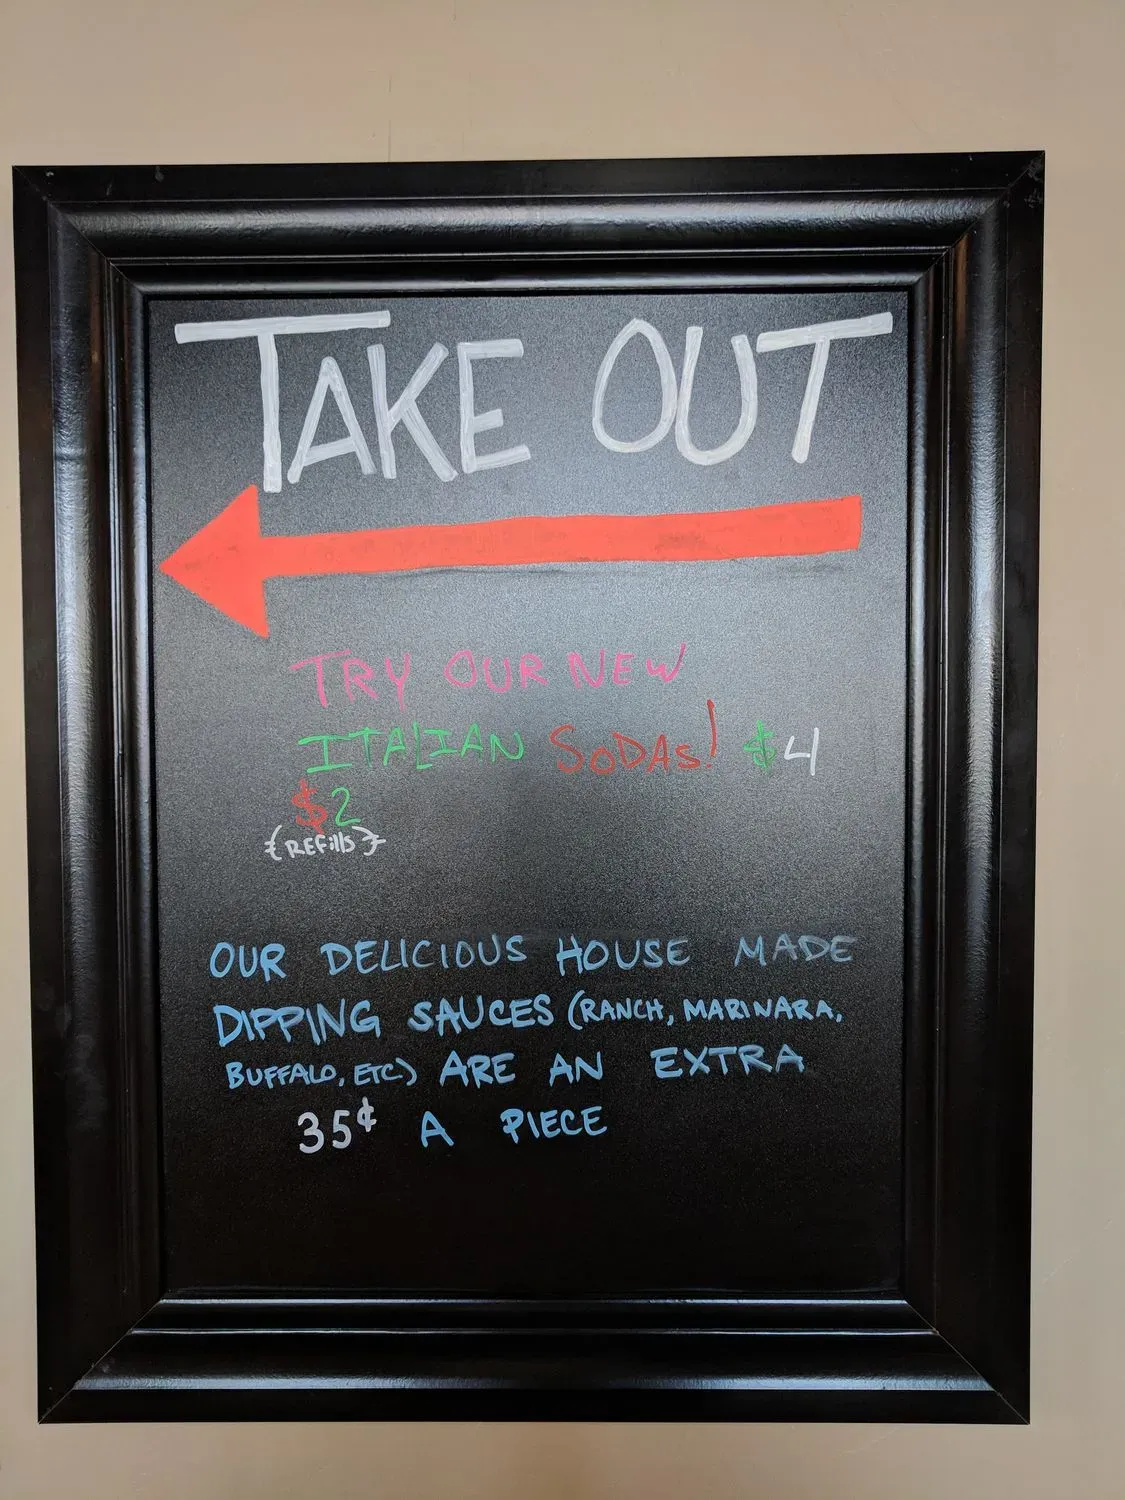 TAKE OUT
TRY OUR NEW
ITALIAN SODAS! $4
$2
{REFills}
OUR DELICIOUS HOUSE MADE
DIPPING SAUCES (RANCH, MARINARA,
BUFFALO, ETC) ARE AN EXTRA
35¢ A PIECE